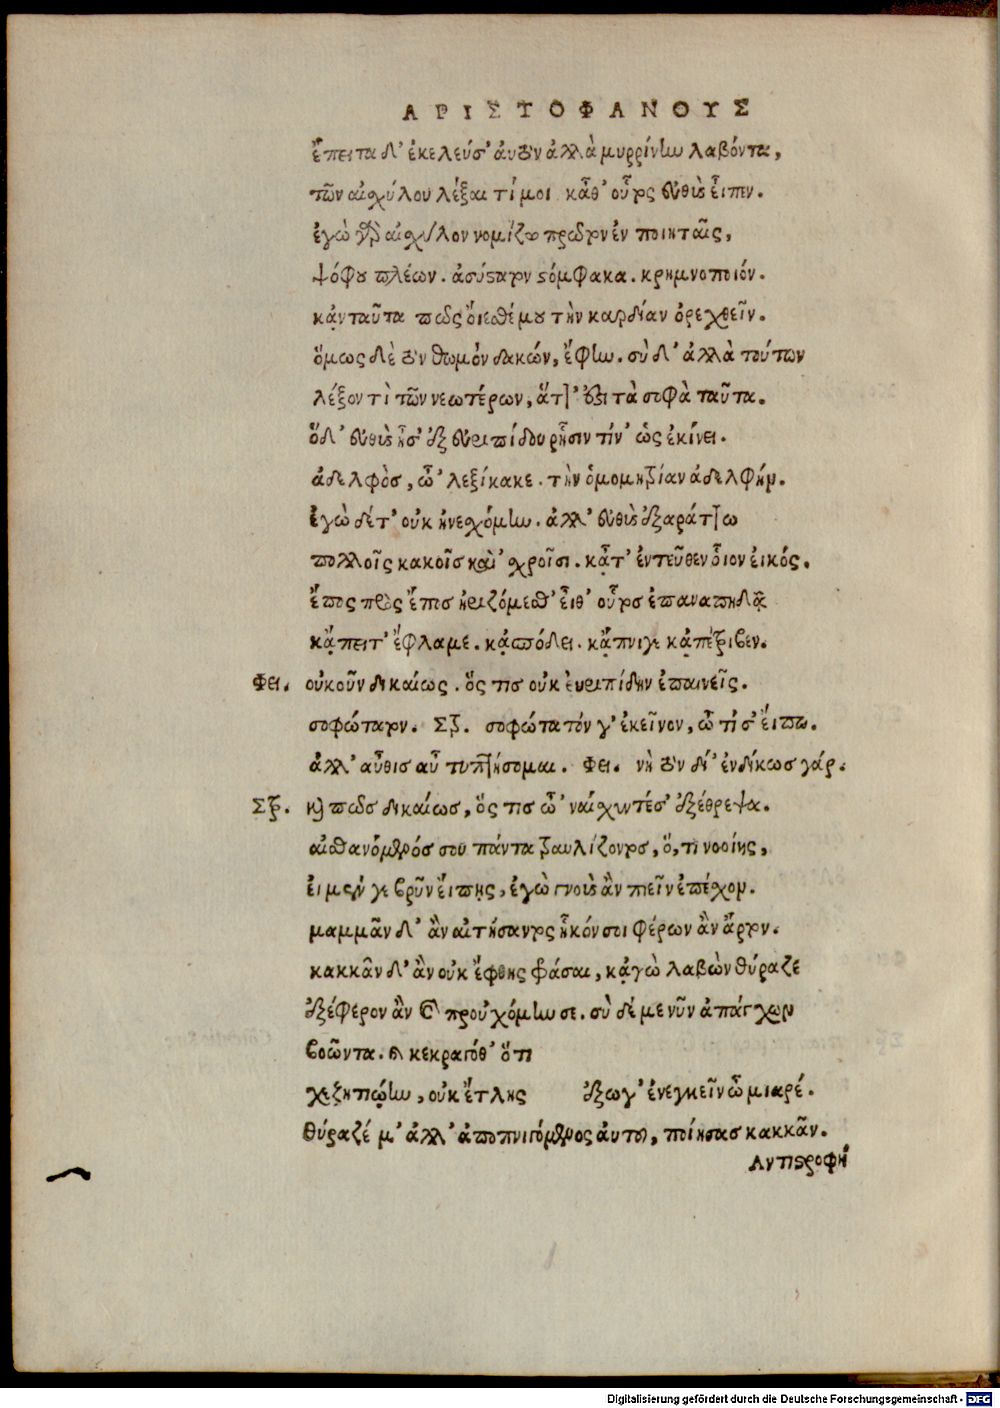 ΑΡΙΣΤΟΦΑΝΟΥΣ
ἔπειτα δ' ἐκελεύσ' αὐτὸν ἀλλὰ μυρρίνην λαβόντα,
τῶν αἰσχύλου λέξαι τί μοι κᾆθ' οὗτος εὐθὺς εἶπεν.
ἐγὼ γὰρ αἰσχύλον νομίζω πρῶτον ἐν ποιηταῖς,
ψόφου πλέων. ἀσύστατον στόμφακα. κρημνοποιόν.
κἀνταῦτα πῶς οἴεσθέ μου τὴν καρδίαν ὀρεχθεῖν.
ὅμως δὲ τὸν θυμὸν δακών, ἔφην. σὺ δ' ἀλλὰ τούτων
λέξον τὶ τῶν νεωτέρων, ἅττ' ἐστὶ τὰ σοφὰ ταῦτα.
ὅδ' εὐθὺς ἦσ' ἐξ εὐριπίδου ῥῆσιν τίν' ὡς ἐκίνει.
ἀδελφὸς, ὦ' λεξίκακε. τὴν ὁμομητρίαν ἀδελφήν.
ἐγὼ δέτ' οὐκ ἠνεχόμην. ἀλλ' εὐθὺς ἐξαράττω
πολλοῖς κακοῖς καὶ' χροῖσι. κᾆτ' ἐντεῦθεν οἷον εἰκός.
ἔπος πρὸς ἔπος ἠριζόμεσθ' εἶθ' οὗτος ἐπαναπηδᾷ
κἄπειτ' ἔφλαμε. κἀσπόδει. κἄπνιγε κἀπέτριβεν.
Φει. οὐκοῦν δικαίως. ὅς τις οὐκ εὐριπίδην ἐπαινεῖς.
σοφώτατον. Στρ. σοφώτατόν γ' ἐκεῖνον, ὦ τί σ' εἴπω.
ἀλλ' αὖθις αὖ τυπτήσομαι. Φει. νὴ τὸν δί' ἐνδίκως γάρ.
Στρ. καὶ πῶς δικαίως, ὅς τις ὦ' ναίσχυντέ σ' ἐξέθρεψα.
αἰσθανόμενός σου πάντα τραυλίζοντος, ὅ,τι νοοίης,
εἰ μέν γε βρῦν εἴπῃς, ἐγὼ γνοὺς ἂν πιεῖν ἐπέσχον.
μαμμᾶν δ' ἂν αἰτήσαντος ἧκόν σοι φέρων ἂν ἄρτον.
κακκᾶν δ' ἂν οὐκ ἔφθης φάσαι, κἀγὼ λαβὼν θύραζε
ἐξέφερον ἂν καὶ προὐχόμην σε. σὺ δέ με νῦν ἀπάγχων
βοῶντα. καὶ κεκραγόθ' ὅτι
χεζητιῴην, οὐκ ἔτλης ἔξω γ' ἐνεγκεῖν ὦ μιαρέ.
θύραζέ μ' ἀλλ' ἀποπνιγόμενος αὐτοῦ, ποίησας κακκᾶν.
Αντιστροφή
Digitalisierung gefördert durch die Deutsche Forschungsgemeinschaft - DFG